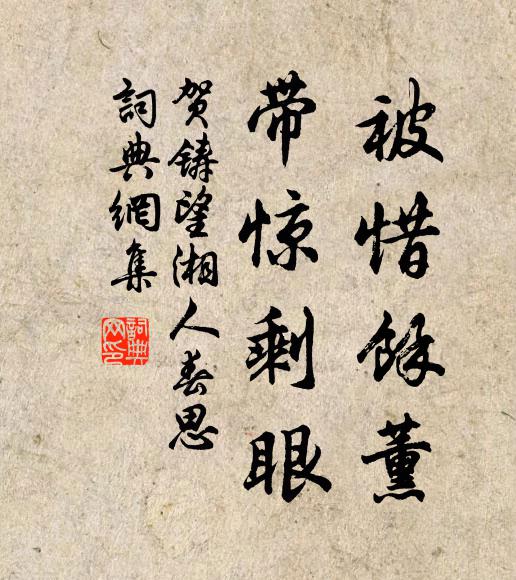 被惜餘薰
带惊剩眼
贺铸望湘人春思
詞典網集
詞典
网印